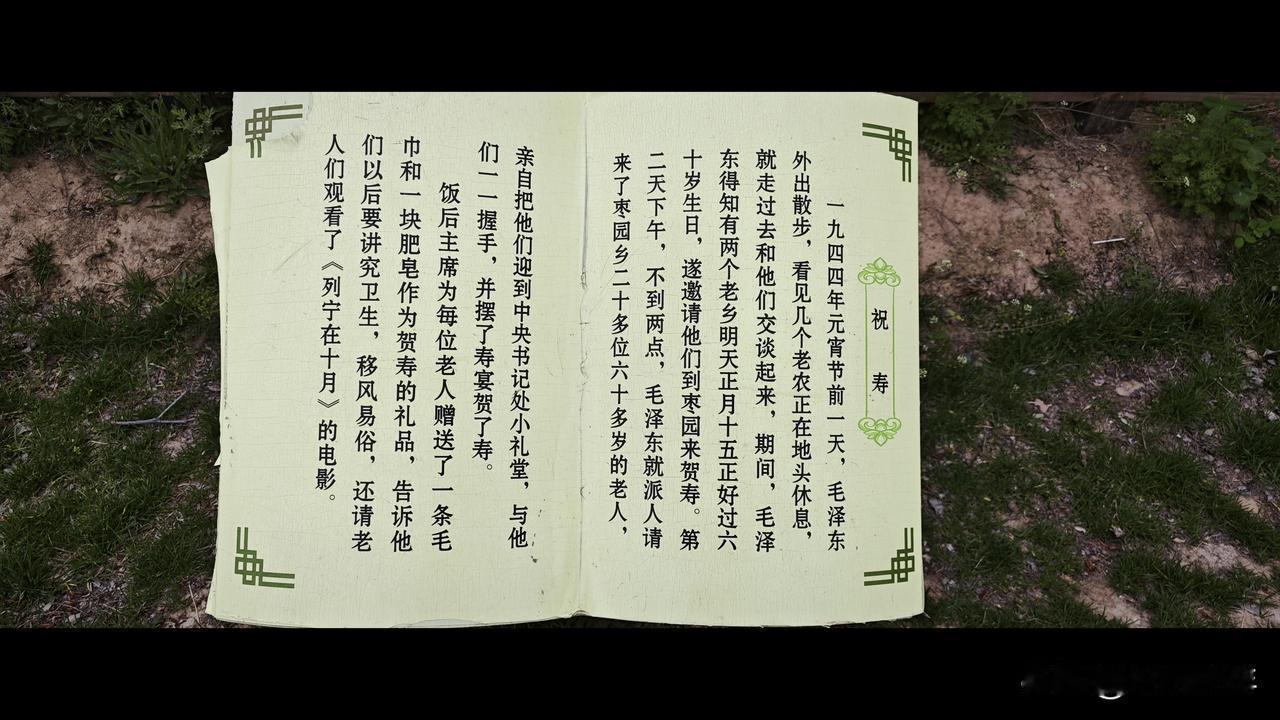 祝寿
一九四四年元宵节前一天，毛泽东
外出散步，看见几个老农正在地头休息，
就走过去和他们交谈起来，期间，毛泽
东得知有两个老乡明天正月十五正好过六
十岁生日，遂邀请他们到枣园来贺寿。第
二天下午，不到两点，毛泽东就派人请
来了枣园乡二十多位六十多岁的老人，
亲自把他们迎到中央书记处小礼堂，与他
们一一握手，并摆了寿宴贺了寿。
饭后主席为每位老人赠送了一条毛
巾和一块肥皂作为贺寿的礼品，告诉他
们以后要讲究卫生，移风易俗，还请老
人们观看了《列宁在十月》的电影。